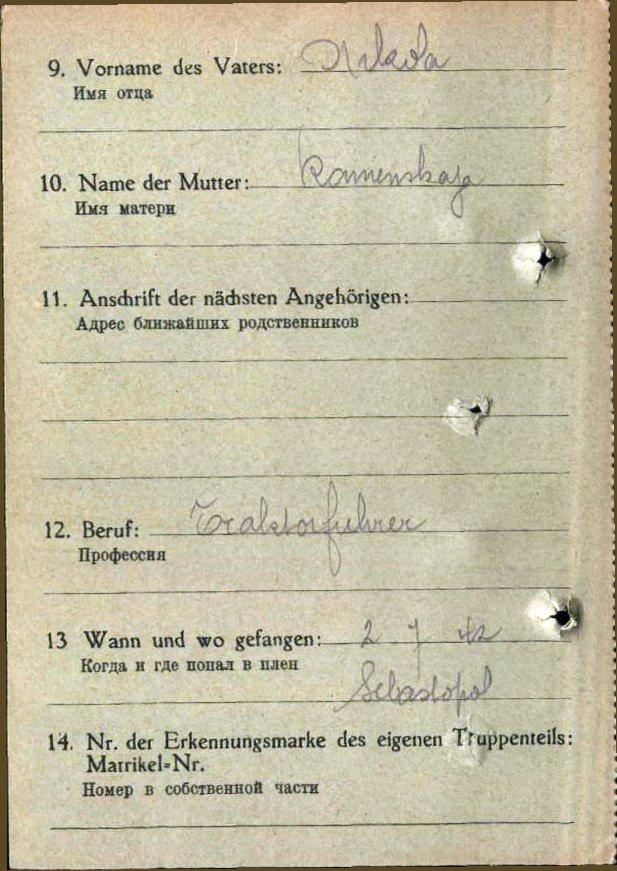 9. Vorname des Vaters:
Имя отца
10. Name der Mutter: Kamenskaja
Имя матери
11. Anschrift der nächsten Angehörigen:
Адрес ближайших родственников
12. Beruf: Traktorfuhrer
Профессия
13 Wann und wo gefangen: 2 7 42
Когда и где попал в плен
Sebastopol
14. Nr. der Erkennungsmarke des eigenen Truppenteils:
Matrikel=Nr.
Номер в собственной части